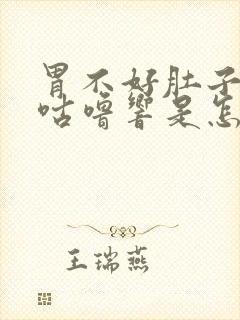 胃不好肚子
咕噜响是怎
王瑞燕